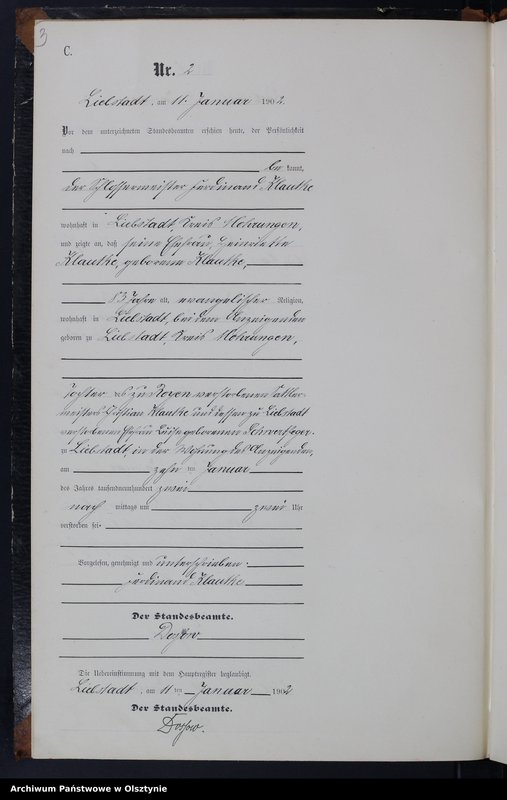 3
C.
Nr. 2
Liebstadt, am 11. Januar 1902.
Vor dem unterzeichneten Standesbeamten erschien heute, der Persönlichkeit
nach
be kannt,
der Schlossermeister Ferdinand Klautke
wohnhaft in Liebstadt, Kreis Mohrungen,
und zeigte an, daß seine Ehefrau, Henriette
Klautke, geborene Klautke,
53 Jahre alt, evangelischer Religion,
wohnhaft in Liebstadt, bei dem Anzeigenden
geboren zu Liebstadt, Kreis Mohrungen,
Tochter des zu verstorbenen Sattler-
meisters Christian Klautke und dessen zu Liebstadt
verstorbenen Ehefrau Luise geborenen Schwertfeger.
zu Liebstadt, in der Wohnung des Anzeigenden,
am zehn ten Januar
des Jahres tausendneunhundert zwei
nach mittags um zwei Uhr
verstorben sei.
Vorgelesen, genehmigt und unterschrieben.
Ferdinand Klautke
Der Standesbeamte.
Die Uebereinstimmung mit dem Hauptregister beglaubigt.
Liebstadt, am 11 ten Januar 1902
Der Standesbeamte.
Archiwum Państwowe w Olsztynie